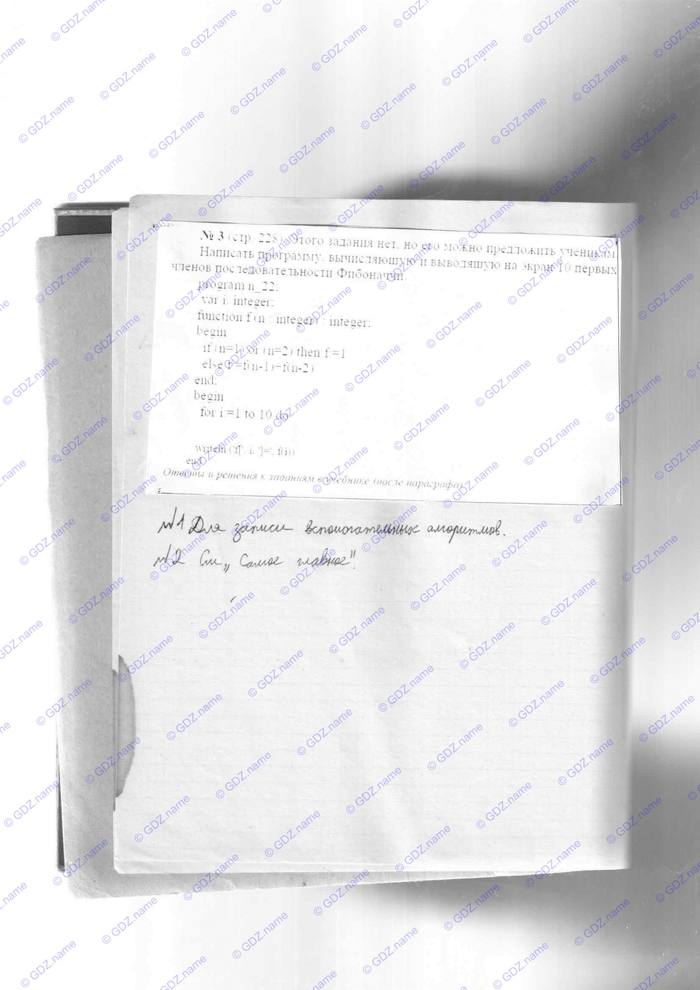 № 3 (стр. 228). Этого задания нет, но его можно предложить ученикам.
Написать программу, вычисляющую и выводящую на экран 10 первых
членов последовательности Фибоначчи.
program n_22;
var i: integer;
function f (n : integer) : integer;
begin
if (n=1) or (n=2) then f:=1
else f:=f(n-1)+f(n-2)
end;
begin
for i:=1 to 10 do
writeln ('f[', i, ']=', f(i))
end.
Ответы и решения к заданиям в учебнике (после параграфа)
№1 Для записи вспомогательных алгоритмов.
№2 См „Самое главное".
© GDZ.name